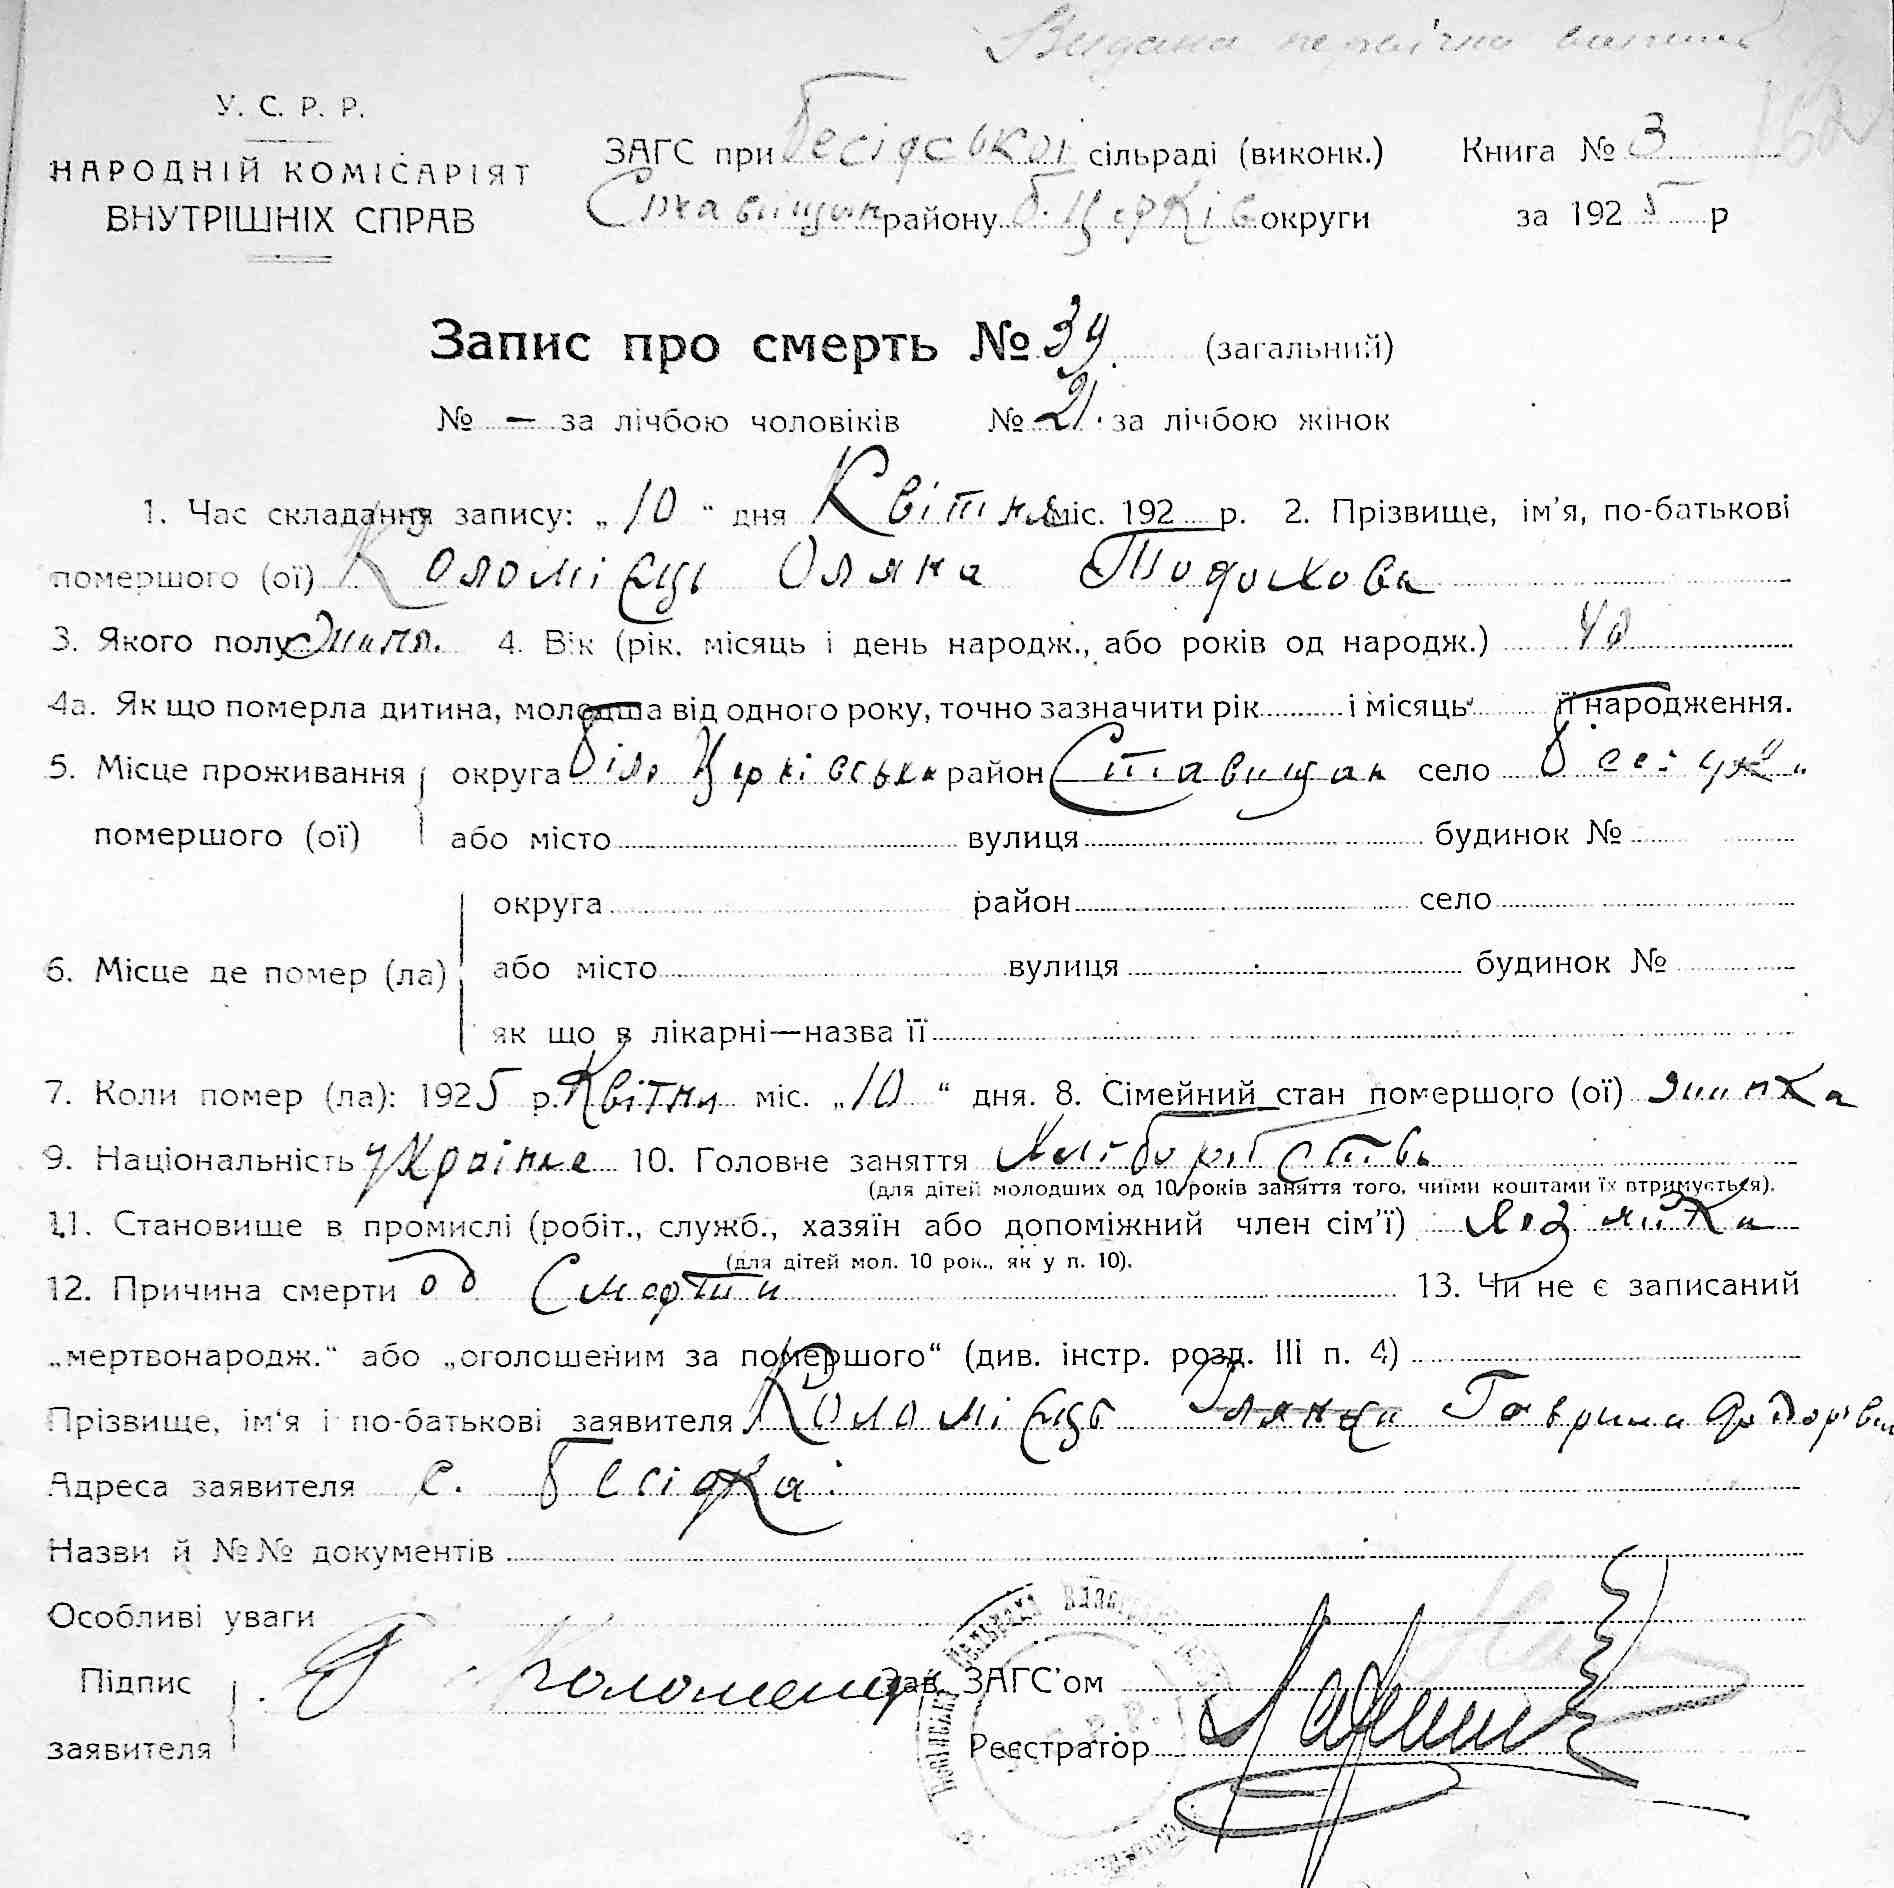 Видана
У. С. Р. Р.
НАРОДНІЙ КОМІСАРІЯТ
ВНУТРІШНІХ СПРАВ
ЗАГС при Бесідської сільраді (виконк.) Книга № 3
Ставищан району Б. Церків округи за 1925 р
Запис про смерть № 39 (загальний)
№ — за лічбою чоловіків № 21 за лічбою жінок
1. Час складання запису: „10“ дня Квітня міс. 192 р. 2. Прізвище, ім'я, по-батькові
помершого (ої) Коломієць Оляна Тодохова
3. Якого полу 4. Вік (рік. місяць і день народж., або років од народж.) 40
4а. Як що померла дитина, молодша від одного року, точно зазначити рік і місяць її народження.
5. Місце проживання округа Біло Церківська район Ставищан село Бесідка
помершого (ої) або місто вулиця будинок №
округа район село
6. Місце де помер (ла) або місто вулиця будинок №
як що в лікарні—назва її
7. Коли помер (ла): 1925 р. Квітня міс. „10“ дня. 8. Сімейний стан помершого (ої)
9. Національність україн 10. Головне заняття Хліборобство
(для дітей молодших од 10 років заняття того, чиїми коштами їх втримується).
11. Становище в промислі (робіт., служб., хазяїн або допоміжний член сім'ї) Хазяйка
(для дітей мол. 10 рок., як у п. 10).
12. Причина смерти од Смерти 13. Чи не є записаний
„мертвонародж.“ або „оголошеним за помершого“ (див. інстр. розд. III п. 4)
Прізвище, ім'я і по-батькові заявителя Коломієць Гаврило
Адреса заявителя с. Бесідка
Назви й №№ документів
Особливі уваги
Підпис
заявителя
Зав. ЗАГС'ом
Реєстратор